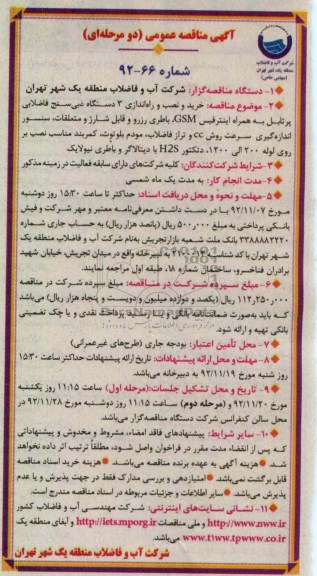 شرکت آب و فاضلاب
منطقه یک شهر تهران
(سهامی خاص)
آگهی مناقصه عمومی (دو مرحله‌ای)
شماره ۶۶-۹۲
۱- دستگاه مناقصه‌گزار: شرکت آب و فاضلاب منطقه یک شهر تهران
۲- موضوع مناقصه: خرید و نصب و راه‌اندازی ۳ دستگاه دبی‌سنج فاضلابی
پرتابل به همراه اینترفیس GSM، باطری رزرو و قابل شارژ و متعلقات، سنسور
اندازه‌گیری سرعت روش cc و تراز فاضلاب، مودم بلوتوث، کمربند مناسب نصب بر
روی لوله ۲۰۰ الی ۱۲۰۰، دتکتور H2S با دیتالاگر و باطری نیولایک
۳- شرایط شرکت‌کنندگان: کلیه شرکت‌های دارای سابقه فعالیت در زمینه مذکور
۴- مدت انجام کار: به مدت یک ماه شمسی
۵- مهلت و نحوة و محل دریافت اسناد: حداکثر تا ساعت ۱۵:۳۰ روز دوشنبه
مورخ ۹۲/۱۱/۰۷ با در دست داشتن معرفی‌نامه معتبر و مهر شرکت و فیش
بانکی پرداختی به مبلغ ۵۰۰,۰۰۰ ریال (پانصد هزار ریال) به حساب جاری شماره
۳۳۸۸۸۲۲۲۰ بانک ملت شعبه بازار تجریش به‌نام شرکت آب و فاضلاب منطقه یک
شهر تهران با کد شناسه به دبیرخانه واقع در میدان تجریش، خیابان شهید
برادران فناخسرو، ساختمان شماره ۱۸، طبقه اول مراجعه نمایند.
۶- مبلغ سپرده شرکت در مناقصه: مبلغ سپرده شرکت در مناقصه
۱۱۲,۲۵۰,۰۰۰ ریال (یکصد و دوازده میلیون و دویست و پنجاه هزار ریال) می‌باشد
که باید به‌صورت ضمانتنامه بانکی و یا پرداخت نقدی و یا چک تضمینی
بانکی تهیه و ارائه شود.
۷- محل تأمین اعتبار: بودجه جاری (طرح‌های غیرعمرانی)
۸- مهلت و محل ارائه پیشنهادات: تاریخ ارائه پیشنهادات حداکثر ساعت ۱۵:۳۰
روز شنبه مورخ ۹۲/۱۱/۱۹ به دبیرخانه می‌باشد.
۹- تاریخ و محل تشکیل جلسات: (مرحله اول) ساعت ۱۱:۱۵ روز یکشنبه
مورخ ۹۲/۱۱/۲۰ و (مرحله دوم) ساعت ۱۱:۱۵ روز دوشنبه مورخ ۹۲/۱۱/۲۸ در
محل سالن کنفرانس شرکت دستگاه مناقصه‌گزار می‌باشد.
۱۰- سایر شرایط: پیشنهادهای فاقد امضاء، مشروط و مخدوش و پیشنهاداتی
که پس از انقضاء مدت مقرر در فراخوان واصل شود، مطلقاً ترتیب اثر داده نخواهد
شد. هزینه آگهی به عهده برنده مناقصه می‌باشد. هزینه خرید اسناد مناقصه
قابل برگشت نمی‌باشد. امتیازدهی و بررسی مدارک فقط در جهت پذیرش و یا عدم
پذیرش می‌باشد. سایر اطلاعات و جزئیات مربوطه در اسناد مناقصه مندرج است.
۱۱- نشانی سایت‌های اینترنتی: شرکت مهندسی آب و فاضلاب کشور
http://www.nww.ir و ملی مناقصات http://iets.mporg.ir و آبفای منطقه یک
www.t1ww.tpww.co.ir می‌باشد.
شرکت آب و فاضلاب منطقه یک شهر تهران